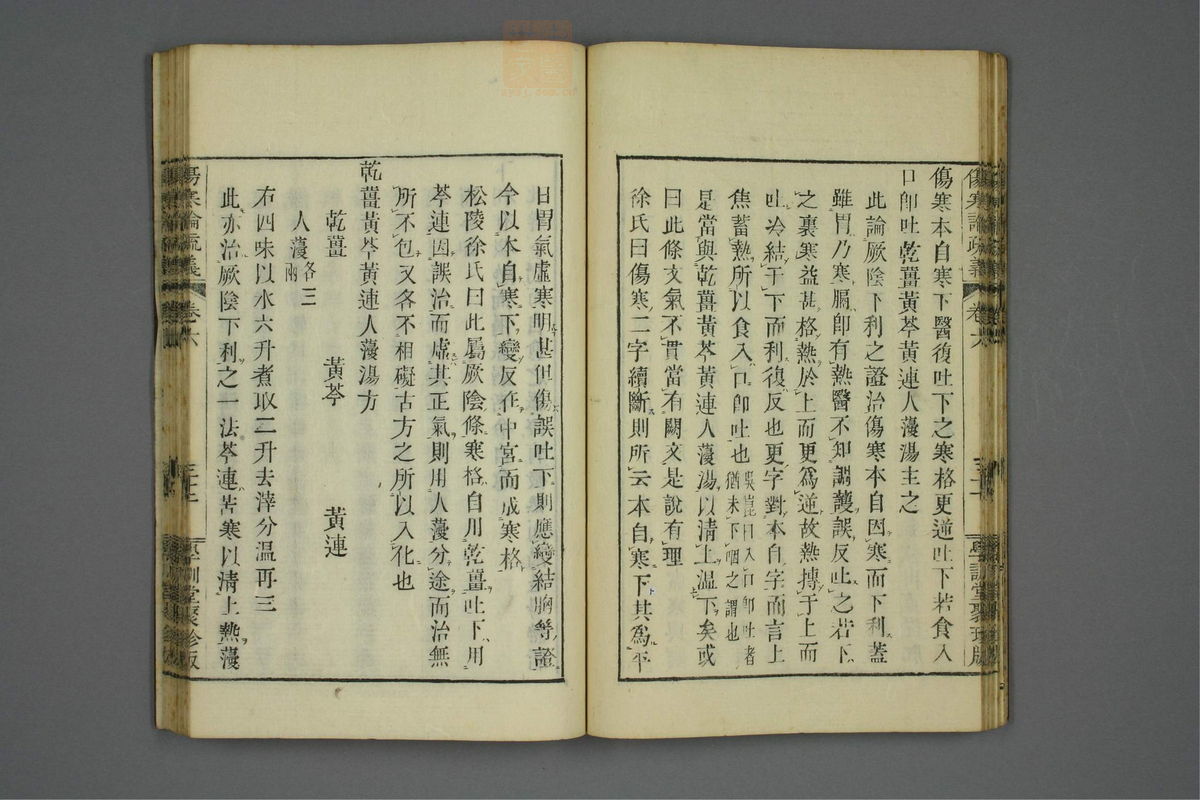 傷寒論疏義 卷六 學訓堂聚珍版
傷寒本自寒下醫復吐下之寒格更逆吐下若食入
口卽吐乾薑黃芩黃連人薓湯主之
此論厥陰下利之證治傷寒本自因寒而下利蓋
雖胃乃寒膈卽有熱醫不知調護誤反吐之若下
之裏寒益甚格熱於上而更爲逆故熱摶于上而
吐冷結于下而利復反也更字對本自字而言上
焦蓄熱所以食入口卽吐也吳崑曰入口卽吐者
猶未下咽之謂也
是當與乾薑黃芩黃連人薓湯以清上溫下矣或
曰此條文氣不貫當有闕文是說有理
徐氏曰傷寒二字續斷則所云本自寒下其爲平
日胃氣虛寒明甚但傷誤吐下則應變結胸等證
今以本自寒下變反在中宮而成寒格
松陵徐氏曰此屬厥陰條寒格自用乾薑吐下用
芩連因誤治而虛其正氣則用人薓分途而治無
所不包又各不相礙古方之所以入化也
乾薑黃芩黃連人薓湯方
乾薑 黃芩 黃連
人薓各三
兩
右四味以水六升煮取二升去滓分溫再三
此亦治厥陰下利之一法芩連苦寒以清上熱薓
傷寒論疏義 卷六 學訓堂聚珍版